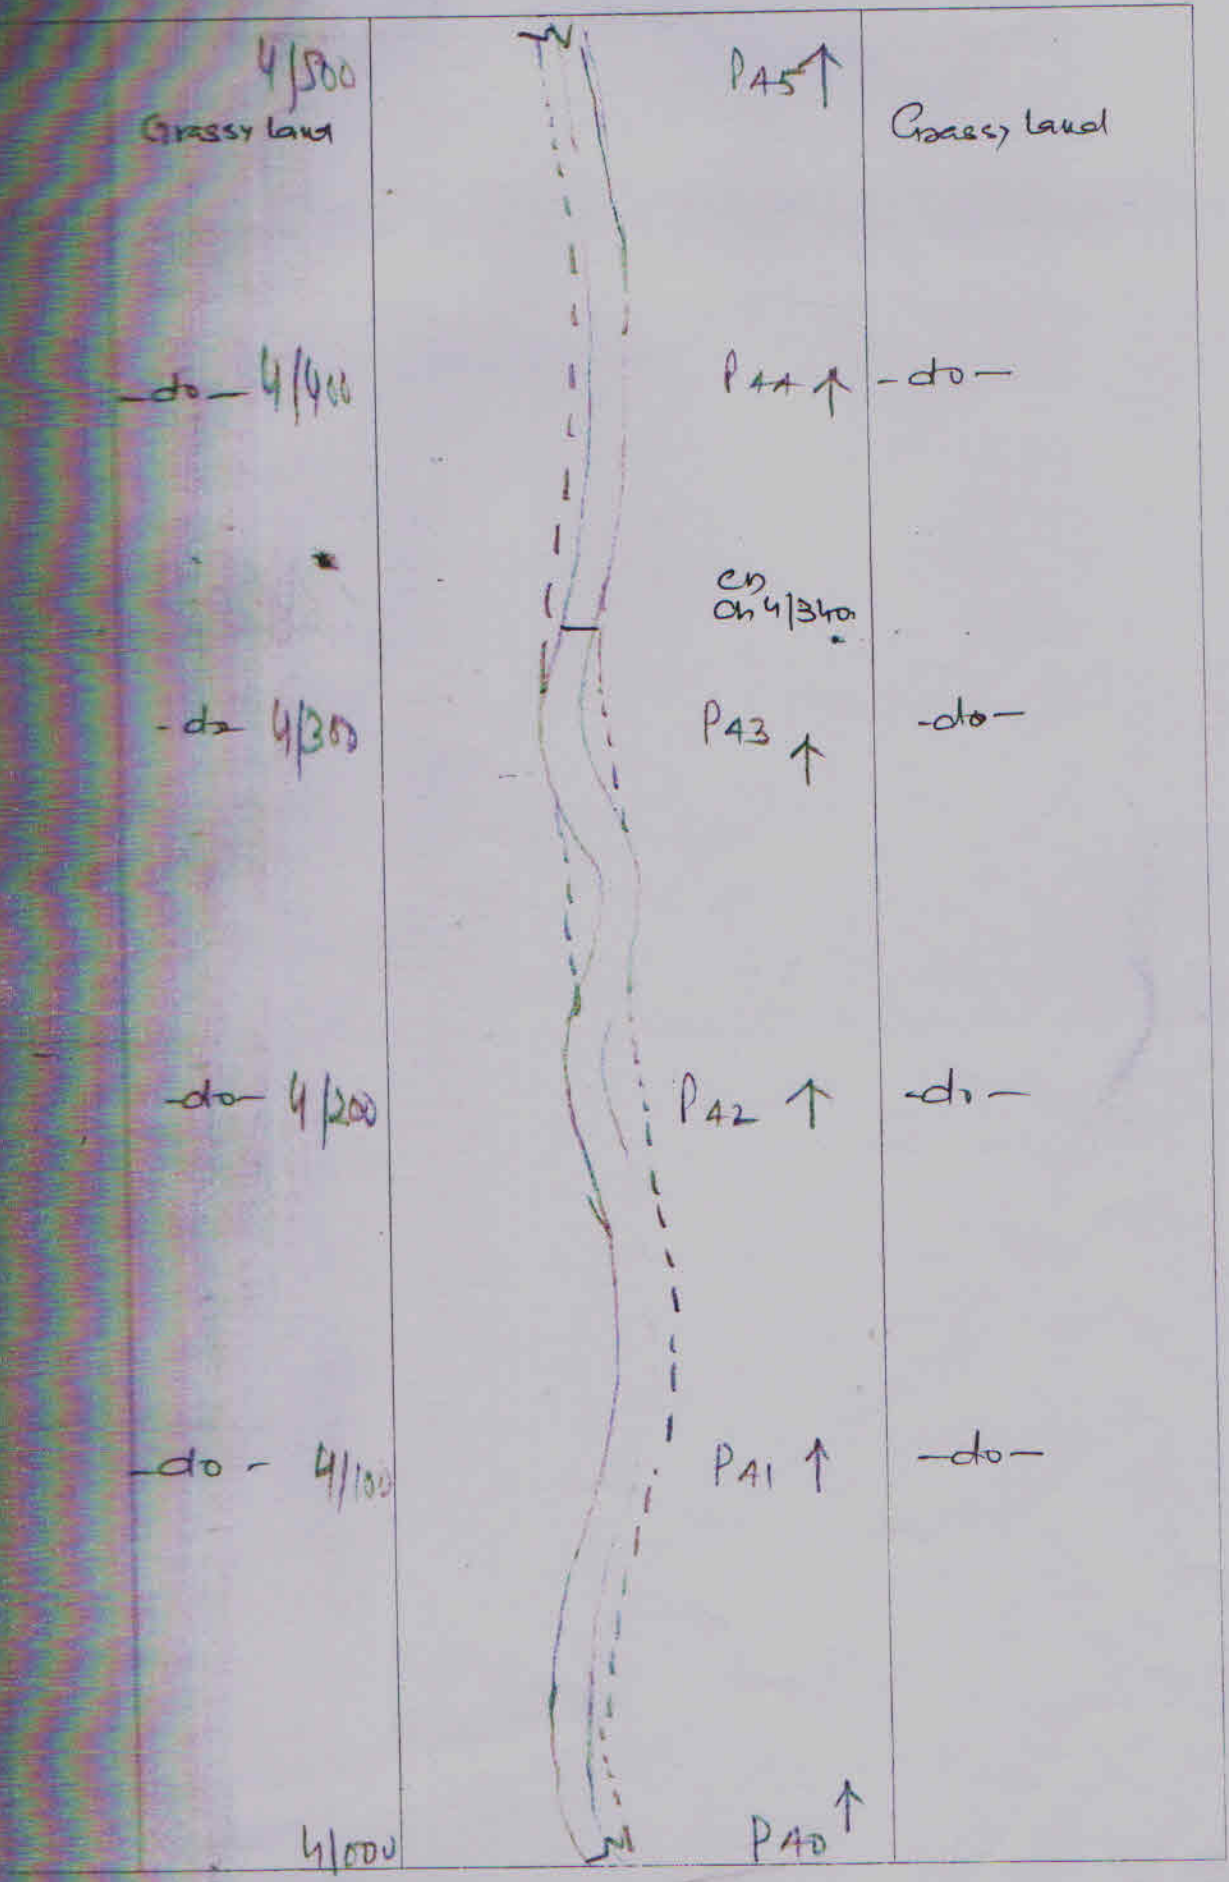 4/500 P45 ↑
Grassy land Grassy land
-do- 4/400 P44 ↑ -do-
CD
Ch 4/340
-do- 4/300 P43 ↑ -do-
-do- 4/200 P42 ↑ -do-
-do- 4/100 P41 ↑ -do-
4/000 P40 ↑